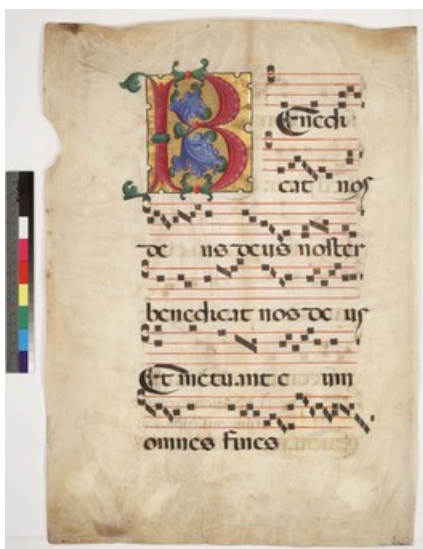 Benedi
cat nos
de us deus noster
benedicat nos de us
Et metuant e um
omnes fines